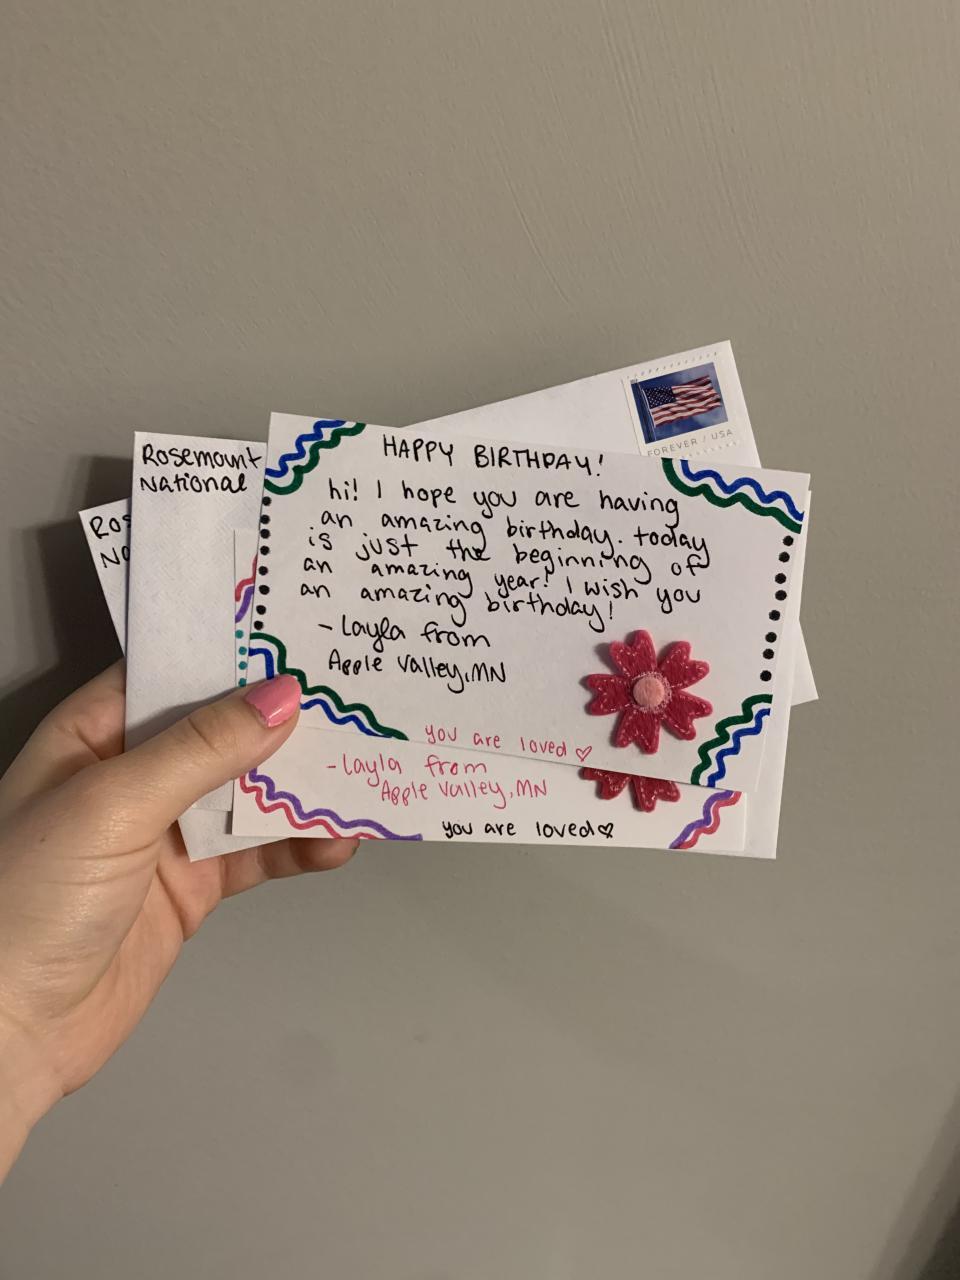 Rosemount
National
Ros
No
FOREVER / USA
HAPPY BIRTHDAY!
hi! I hope you are having
an amazing birthday. today
is just the beginning of
an amazing year! I wish you
an amazing birthday!
- Layla from
Apple Valley, MN
you are loved ♡
- Layla from
Apple Valley, MN
you are loved ♡